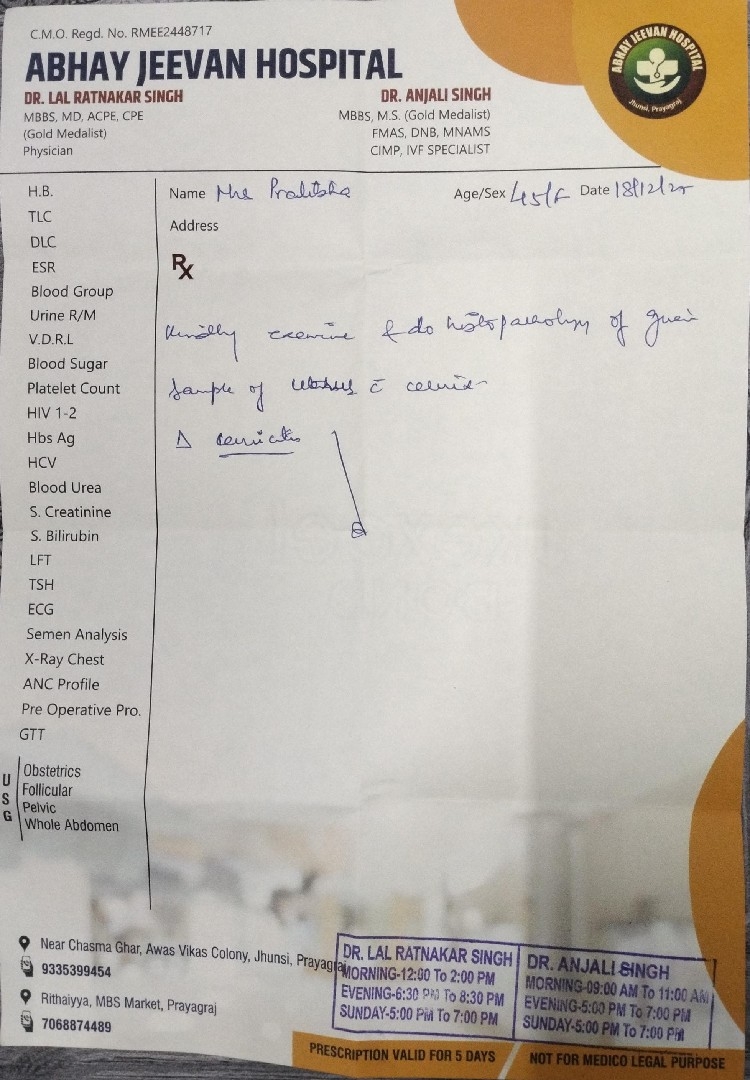 C.M.O. Regd. No. RMEE2448717
ABHAY JEEVAN HOSPITAL
DR. LAL RATNAKAR SINGH
MBBS, MD, ACPE, CPE
(Gold Medalist)
Physician
DR. ANJALI SINGH
MBBS, M.S. (Gold Medalist)
FMAS, DNB, MNAMS
CIMP, IVF SPECIALIST
ABHAY JEEVAN HOSPITAL
Jhunsi, Prayagraj
Name
Age/Sex 45/F Date 18/12/25
Address
Rx
Kindly examine & do histopathology of given
sample of uterus c̄ cervix
Δ cervicitis
H.B.
TLC
DLC
ESR
Blood Group
Urine R/M
V.D.R.L
Blood Sugar
Platelet Count
HIV 1-2
Hbs Ag
HCV
Blood Urea
S. Creatinine
S. Bilirubin
LFT
TSH
ECG
Semen Analysis
X-Ray Chest
ANC Profile
Pre Operative Pro.
GTT
USG
Obstetrics
Follicular
Pelvic
Whole Abdomen
Near Chasma Ghar, Awas Vikas Colony, Jhunsi, Prayagraj
9335399454
Rithaiyya, MBS Market, Prayagraj
7068874489
DR. LAL RATNAKAR SINGH
MORNING-12:00 To 2:00 PM
EVENING-6:30 PM To 8:30 PM
SUNDAY-5:00 PM To 7:00 PM
DR. ANJALI SINGH
MORNING-09:00 AM To 11:00 AM
EVENING-5:00 PM To 7:00 PM
SUNDAY-5:00 PM To 7:00 PM
PRESCRIPTION VALID FOR 5 DAYS
NOT FOR MEDICO LEGAL PURPOSE